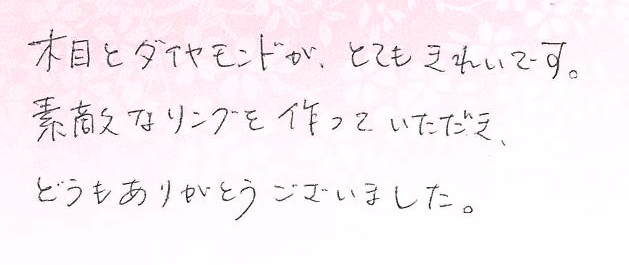 木目とダイヤモンドが、とてもきれいです。
素敵なリングを作っていただき、
どうもありがとうございました。